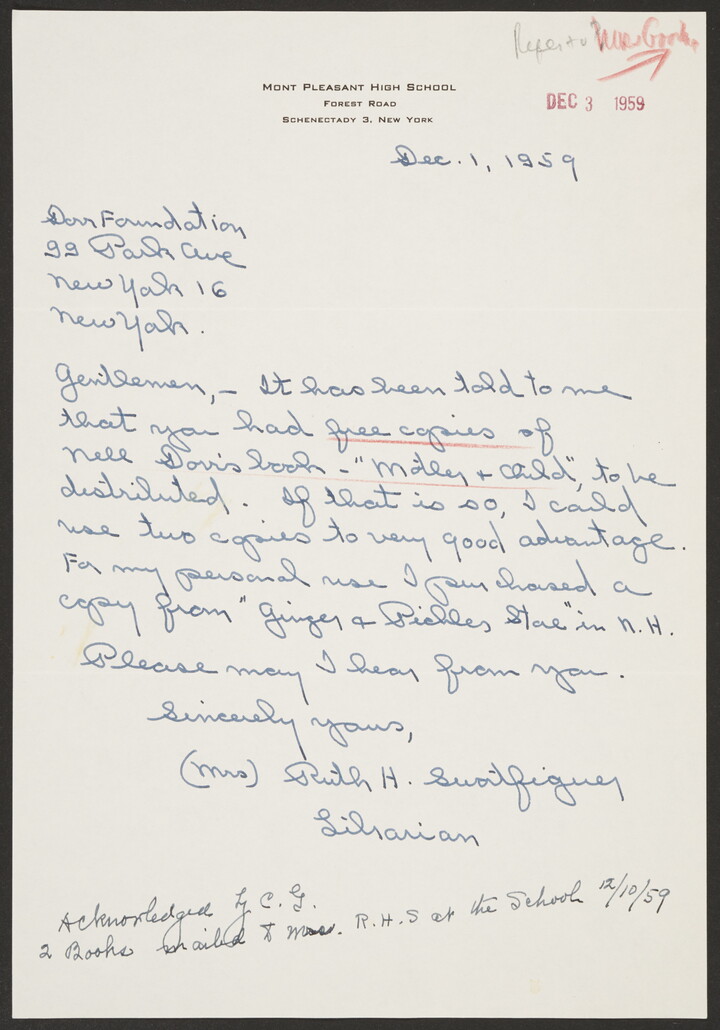 Refer to Mrs Goodu
MONT PLEASANT HIGH SCHOOL
FOREST ROAD
SCHENECTADY 3, NEW YORK
DEC 3 1959
Dec. 1, 1959
Dorr Foundation
99 Park Ave
New York 16
New York.
Gentlemen,- It has been told to me
that you had free copies of
Nell Dorr's book - "Mother + Child", to be
distributed. If that is so, I could
use two copies to very good advantage.
For my personal use I purchased a
copy from "Ginger + Pickles Store" in N.H.
Please may I hear from you.
Sincerely yours,
(Mrs) Ruth H.
Librarian
Acknowledged by C. G.
2 Books mailed to Mrs. R.H.S at the School 12/10/59